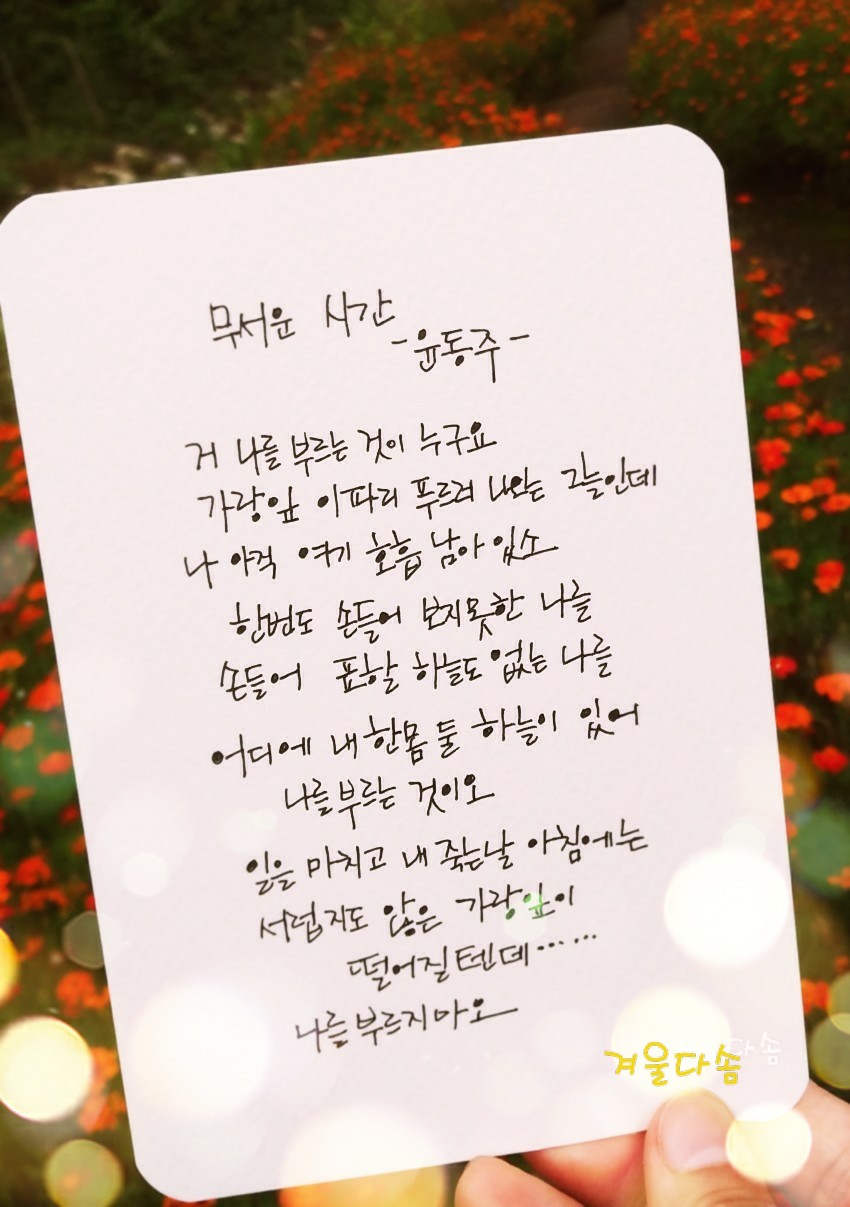 무서운 시간
-윤동주-
거 나를 부르는 것이 누구요
가랑잎 이파리 푸르러 나오는 그늘인데
나 아직 여기 호흡 남아 있소
한번도 손들어 보지못한 나를
손들어 표할 하늘도 없는 나를
어디에 내 한몸 둘 하늘이 있어
나를 부르는 것이오
일을 마치고 내 죽는날 아침에는
서럽지도 않은 가랑잎이
떨어질텐데……
나를 부르지마오
겨울다솜
다솜